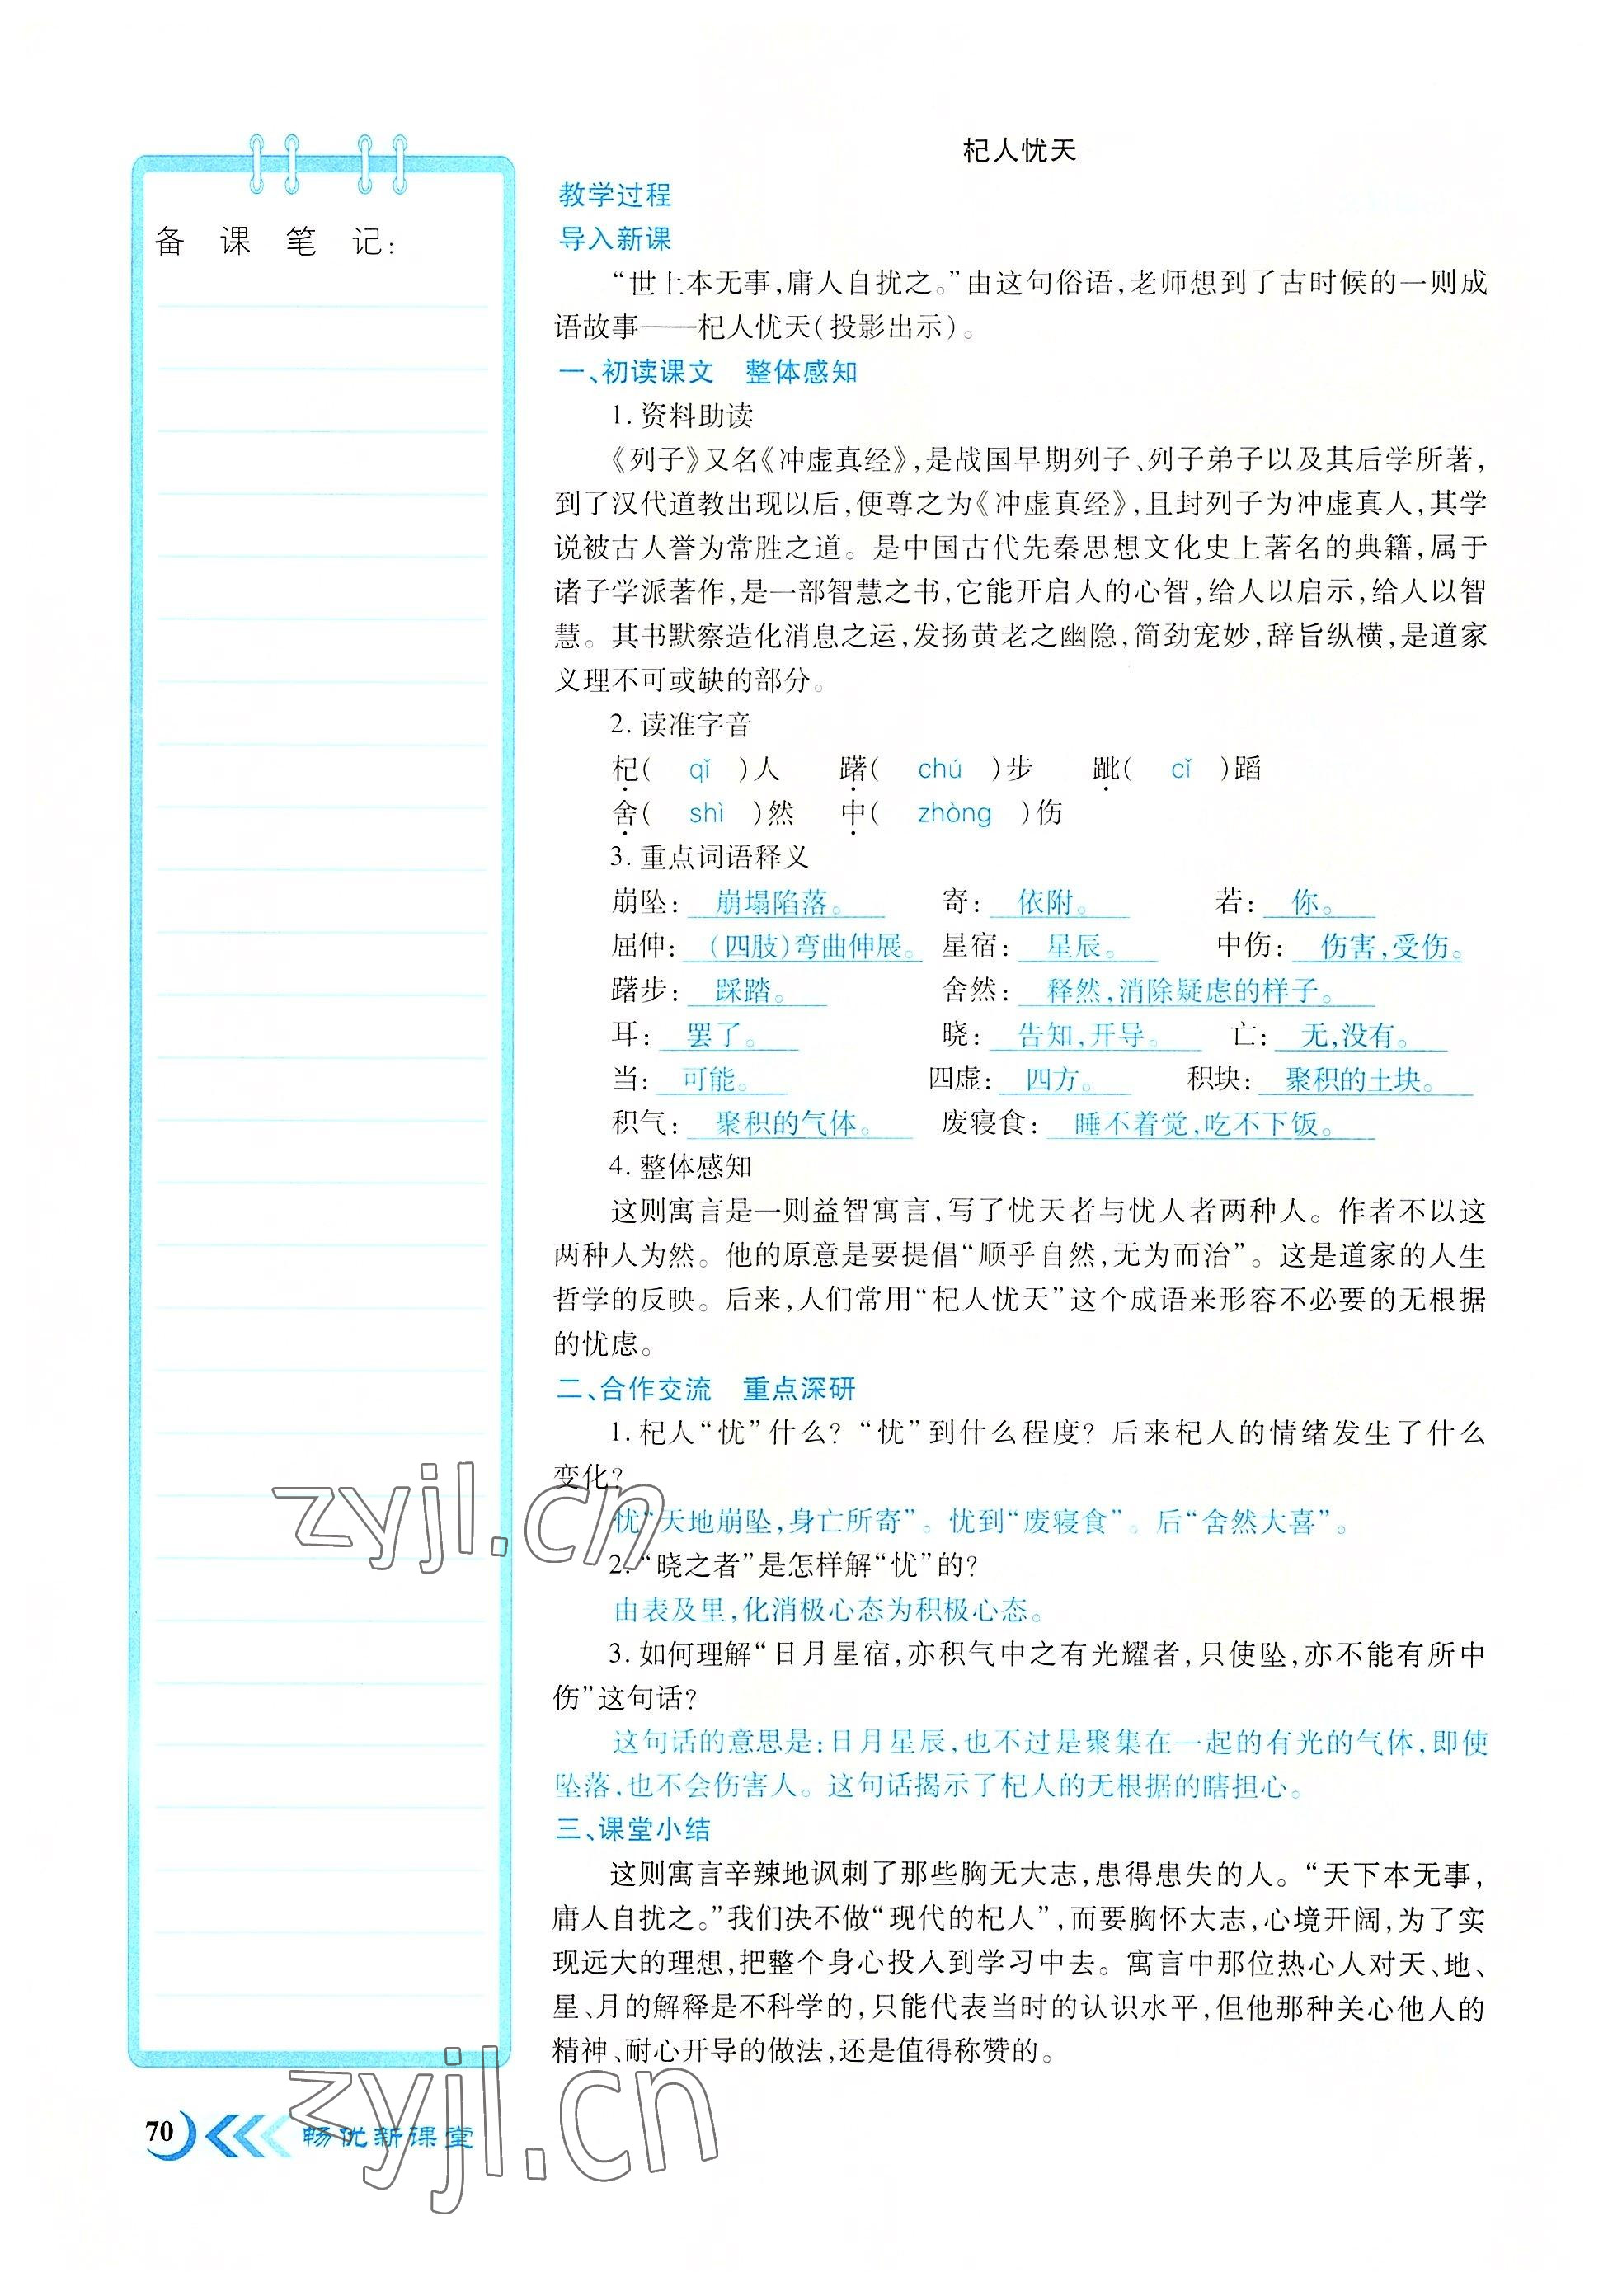 杞人忧天
教学过程
备课笔记：
导入新课
“世上本无事，庸人自扰之。”由这句俗语，老师想到了古时候的一则成
语故事——杞人忧天（投影出示）。
一、初读课文　整体感知
1. 资料助读
《列子》又名《冲虚真经》，是战国早期列子、列子弟子以及其后学所著，
到了汉代道教出现以后，便尊之为《冲虚真经》，且封列子为冲虚真人，其学
说被古人誉为常胜之道。是中国古代先秦思想文化史上著名的典籍，属于
诸子学派著作，是一部智慧之书，它能开启人的心智，给人以启示，给人以智
慧。其书默察造化消息之运，发扬黄老之幽隐，简劲宠妙，辞旨纵横，是道家
义理不可或缺的部分。
2. 读准字音
杞（ qǐ ）人　躇（ chú ）步　跐（ cǐ ）蹈
舍（ shì ）然　中（ zhòng ）伤
3. 重点词语释义
崩坠：崩塌陷落。　寄：依附。　若：你。
屈伸：（四肢）弯曲伸展。　星宿：星辰。　中伤：伤害，受伤。
躇步：踩踏。　舍然：释然，消除疑虑的样子。
耳：罢了。　晓：告知，开导。　亡：无，没有。
当：可能。　四虚：四方。　积块：聚积的土块。
积气：聚积的气体。　废寝食：睡不着觉，吃不下饭。
4. 整体感知
这则寓言是一则益智寓言，写了忧天者与忧人者两种人。作者不以这
两种人为然。他的原意是要提倡“顺乎自然，无为而治”。这是道家的人生
哲学的反映。后来，人们常用“杞人忧天”这个成语来形容不必要的无根据
的忧虑。
二、合作交流　重点深研
1. 杞人“忧”什么？“忧”到什么程度？后来杞人的情绪发生了什么
变化？
忧“天地崩坠，身亡所寄”。忧到“废寝食”。后“舍然大喜”。
2. “晓之者”是怎样解“忧”的？
由表及里，化消极心态为积极心态。
3. 如何理解“日月星宿，亦积气中之有光耀者，只使坠，亦不能有所中
伤”这句话？
这句话的意思是：日月星辰，也不过是聚集在一起的有光的气体，即使
坠落，也不会伤害人。这句话揭示了杞人的无根据的瞎担心。
三、课堂小结
这则寓言辛辣地讽刺了那些胸无大志，患得患失的人。“天下本无事，
庸人自扰之。”我们决不做“现代的杞人”，而要胸怀大志，心境开阔，为了实
现远大的理想，把整个身心投入到学习中去。寓言中那位热心人对天、地、
星、月的解释是不科学的，只能代表当时的认识水平，但他那种关心他人的
精神、耐心开导的做法，还是值得称赞的。
70 畅优新课堂
zyjl.cn
zyjl.cn